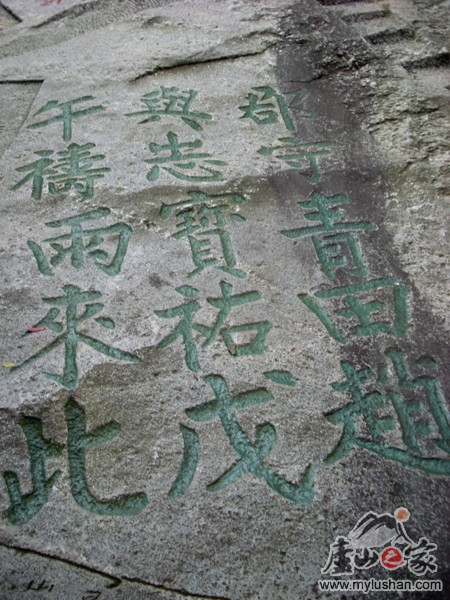 郡守青田趙
與志寶祐戊
午禱雨來此
庐山之家
www.mylushan.com